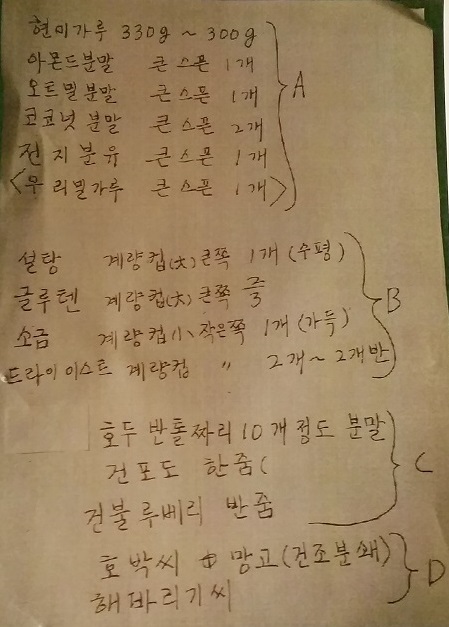 현미가루 330g ~ 300g
아몬드분말 큰스푼 1개
오트밀분말 큰스푼 1개
코코넛 분말 큰스푼 2개
전지분유 큰스푼 1개
<우리밀가루 큰스푼 1개>
A
설탕 계량컵(大) 큰쪽 1개 (수평)
글루텐 계량컵(大) 큰쪽 2/3
소금 계량컵 小 작은쪽 1개 (가득)
드라이이스트 계량컵 〃 2개~2개반
B
호두 반톨짜리 10개정도 분말
건포도 한줌(
건블루베리 반줌
C
호박씨 + 망고(건조분쇄)
해바리기씨
D